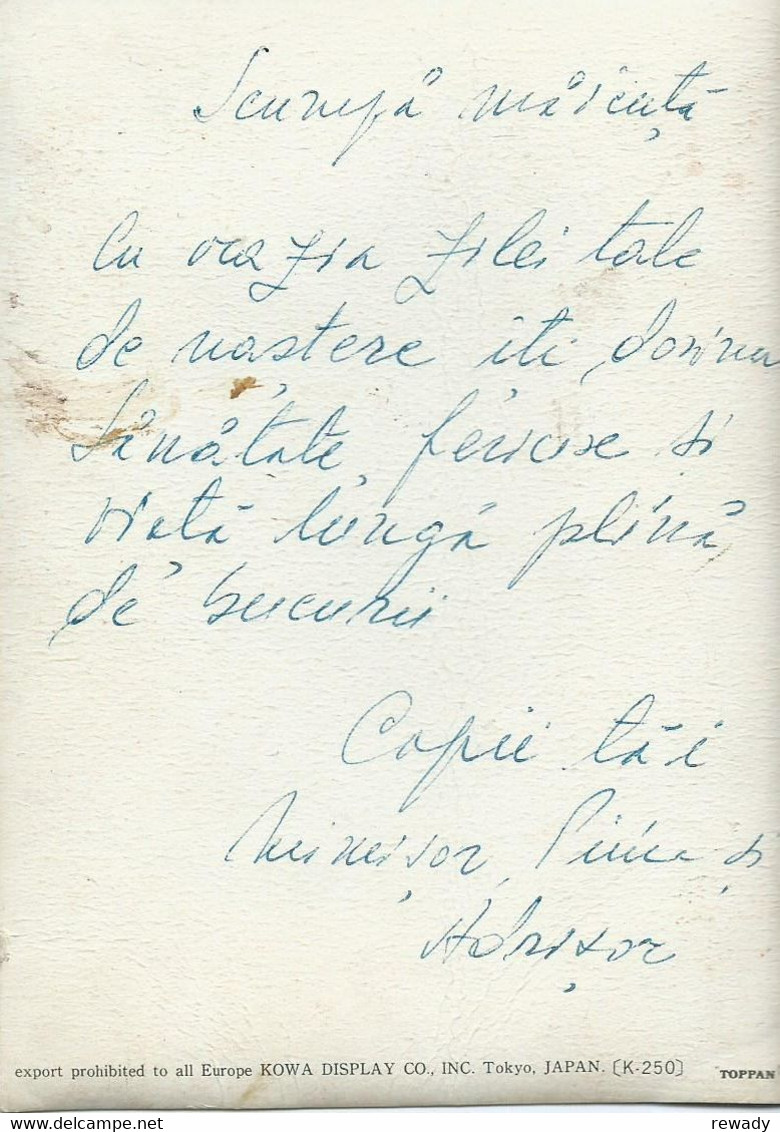 Scumpă măicuță
Cu ocazia zilei tale
de nastere iti dorim
Sănătate, fericire si
viată lungă plină
de bucurii
Copii tăi
și
Adrișor
export prohibited to all Europe KOWA DISPLAY CO., INC. Tokyo, JAPAN. [K-250] TOPPAN
www.delcampe.net
rewady